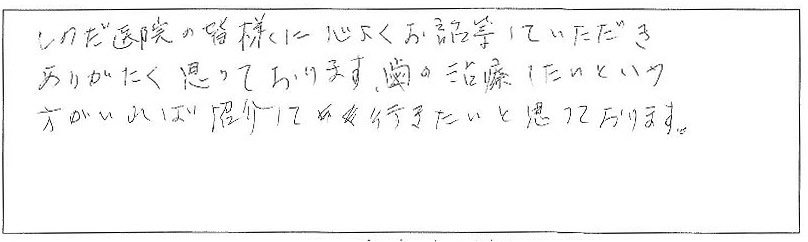 しのだ医院の皆様に心よくお話等していただき
ありがたく思っております、歯の治療したいという
方がいれば紹介して 行きたいと思っております。